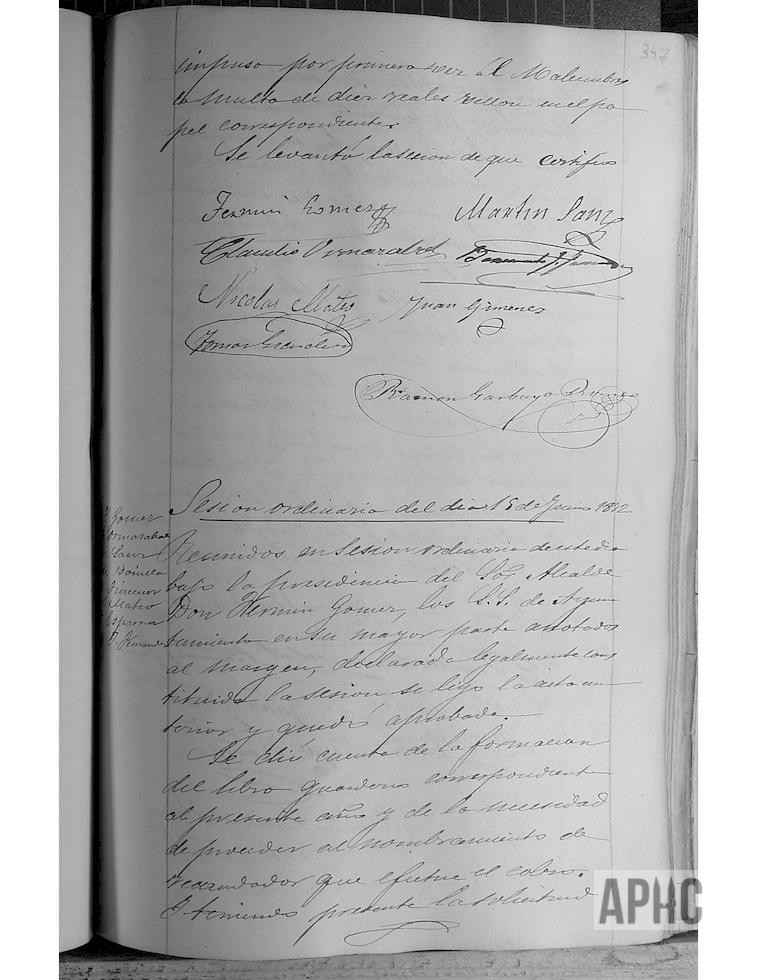 347
impuso por primera vez á el Malumbres
la multa de diez reales vellon en el pa
pel correspondiente.
Se levantó la sesion de que certifico
Fermin Gomez Martin Sanz
Claudio Ormazabal
Nicolas Mateo Juan Gimenez
Tomas
Ramon Garbayo
Sesion ordinaria del dia 15 de Junio 1892
Gomez
Ormazabal
Sanz
Bonilla
Jimenez
Mateo
Esparza
Reunidos en sesion ordinaria de este dia
bajo la presidencia del Sor Alcalde
Don Fermin Gomez, los S.S. de Ayun
tamiento en su mayor parte anotados
al margen, declarada legalmente cons
tituida la sesion se leyó la acta an
terior y quedó aprobada.
Se dió cuenta de la formacion
del libro guarderio correspondiente
al presente año y de la necesidad
de proceder al nombramiento de
recaudador que efectue el cobro.
I teniendo presente la solicitud
APHC